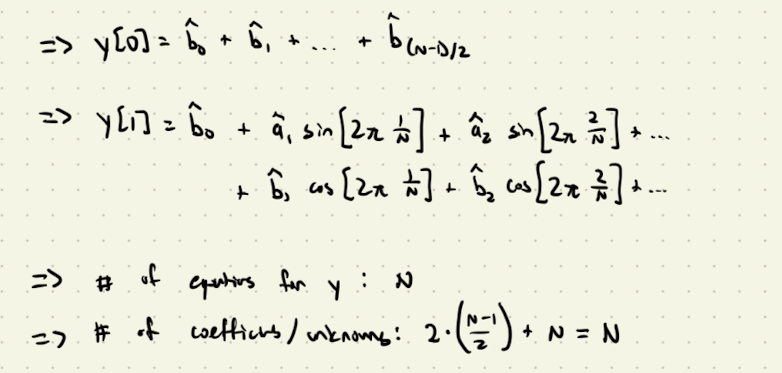 => y[0] = b̂₀ + b̂₁ + ... + b̂_(N-1)/2
=> y[1] = b̂₀ + â₁ sin[2π 1/N] + â₂ sin[2π 2/N] + ...
+ b̂₁ cos[2π 1/N] + b̂₂ cos[2π 2/N] + ...
=> # of equations for y : N
=> # of coefficients/unknowns: 2·((N-1)/2) + N = N